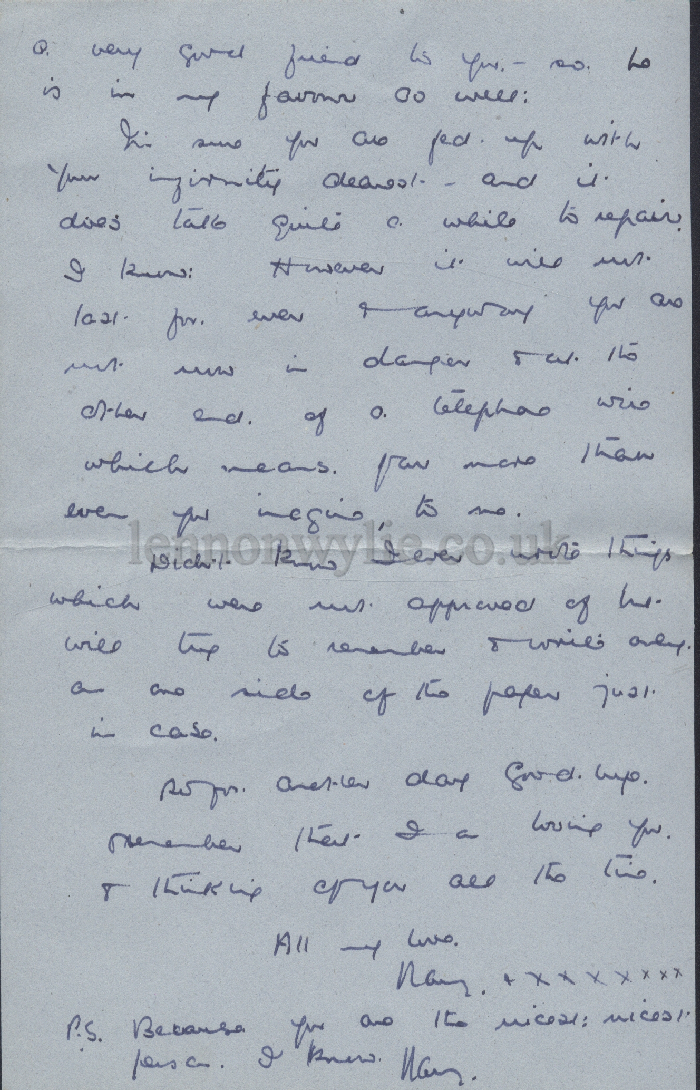 a very good friend to you. - so he
is in my favour as well:
I'm sure you are fed up with
your infirmity dearest - and it
does take quite a while to repair.
I know: However it will not
last for ever & anyway you are
not now in danger & at the
other end of a telephone wire
which means far more than
even you imagine, to me.
lennonwylie.co.uk
Didn't know I ever wrote things
which were not approved of but
will try to remember & write only
on one side of the paper just
in case.
So for another day Good-bye.
Remember that I am loving you
& thinking of you all the time.
All my love.
xxxxxxxx
P.S. Because you are the nicest: nicest
person I know.